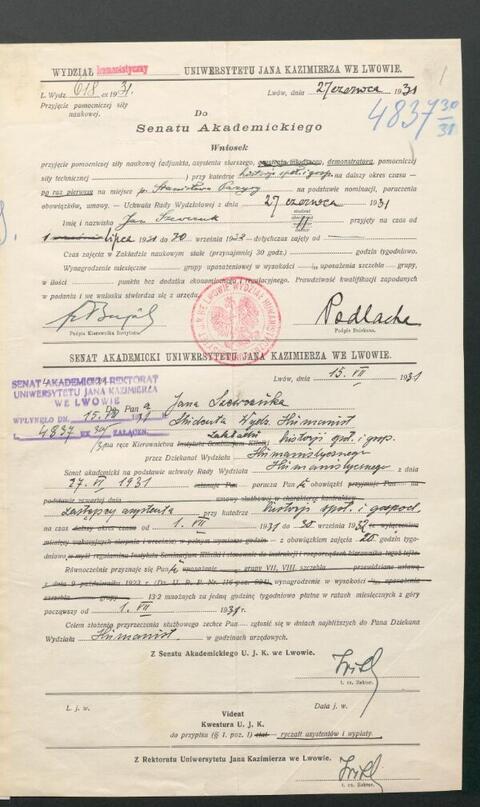 WYDZIAŁ humanistyczny UNIWERSYTETU JANA KAZIMIERZA WE LWOWIE.
L. Wydz. 618 ex 31.
Lwów, 27 czerwca 1931
Przyjęcie pomocniczej siły
naukowej.
4837 30/31
Do
Senatu Akademickiego
Wniosek
przyjęcie pomocniczej siły naukowej (adjunkta, asystenta starszego, asystenta młodszego, demonstratora, pomocniczej
siły technicznej ) przy katedrze historji społ. i gosp. na dalszy okres czasu —
po raz pierwszy na miejsce p. Stanisława na podstawie nominacji, poruczenia
obowiązków, umowy. — Uchwała Rady Wydziałowej z dnia 27 czerwca 1931
Imię i nazwisko Jan Szewczuk przyjęty na czas od
1 lipca 1931 do 30 września 1932 dotychczas zajęty od
Czas zajęcia w Zakładzie naukowym stale (przynajmniej 30 godz.) godzin tygodniowo.
Wynagrodzenie miesięczne grupy uposażeniowej w wysokości uposażenia szczebla grupy,
w ilości punktu bez dodatku ekonomicznego i regulacyjnego. Prawdziwość kwalifikacyj zapodanych
w podaniu i we wniosku stwierdza się z urzędu.
Podpis Kierownika Instytutu.
Podlacha
Podpis Dziekana.
SENAT AKADEMICKI UNIWERSYTETU JANA KAZIMIERZA WE LWOWIE.
Lwów, dnia 15. VII 1931
SENAT AKADEMICKI-REKTORAT
UNIWERSYTETU JANA KAZIMIERZA
WE LWOWIE
WPŁYNĘŁO DN. 15. VII 31
4837 30/31 ZAŁĄCZN.
Do Pana
Jana Szewczuka
Studenta Wydz. Humanist.
na ręce Kierownictwa Instytutu Seminarjum Kliniki Zakładu historji społ. i gosp.
przez Dziekanat Wydziału Humanistycznego
Senat akademicki na podstawie uchwały Rady Wydziału Humanistycznego z dnia
27. VI 1931 mianuje Pan porucza Pan obowiązki przyjmuje Pan na
podstawie zawartej dnia umowy służbowej w charakterze kontrakt.
zastępcy asystenta przy katedrze historji społ. i gospod.
na czas dalszy okres czasu od 1. VII 1931 do 30 września 1932 z wyłączeniem
miesięcy wakacyjnych sierpnia i września w pełnym wymiarze godzin — z obowiązkiem zajęcia 20 godzin tygodniowo
w myśl regulaminu Instytutu Seminarjum Kliniki i stosownie do instrukcji i rozporządzeń kierownika tegoż
Równocześnie przyznaje się Pan uposażenie grupy VII, VIII. szczebla przewidziane ustawą
z dnia 9 października 1923 r. (Dz. U. R. P. Nr. 116 poz. 924), wynagrodzenie w wysokości uposażenia
szczebla grupy 13·2 mnożnych za jedną godzinę tygodniowo płatne w ratach miesięcznych z góry
począwszy od 1. VII 1931 r.
Celem złożenia przyrzeczenia służbowego zechce Pan zgłosić się w dniach najbliższych do Pana Dziekana
Wydziału Humanist. w godzinach urzędowych.
Z Senatu Akademickiego U. J. K. we Lwowie.
t. cz. Rektor.
L. j. w.
Data j. w.
Videat
Kwestura U. J. K.
do przypisu (§ 1. poz. 1) ryczałt asystentów i wypłaty.
Z Rektoratu Uniwersytetu Jana Kazimierza we Lwowie.
t. cz. Rektor.